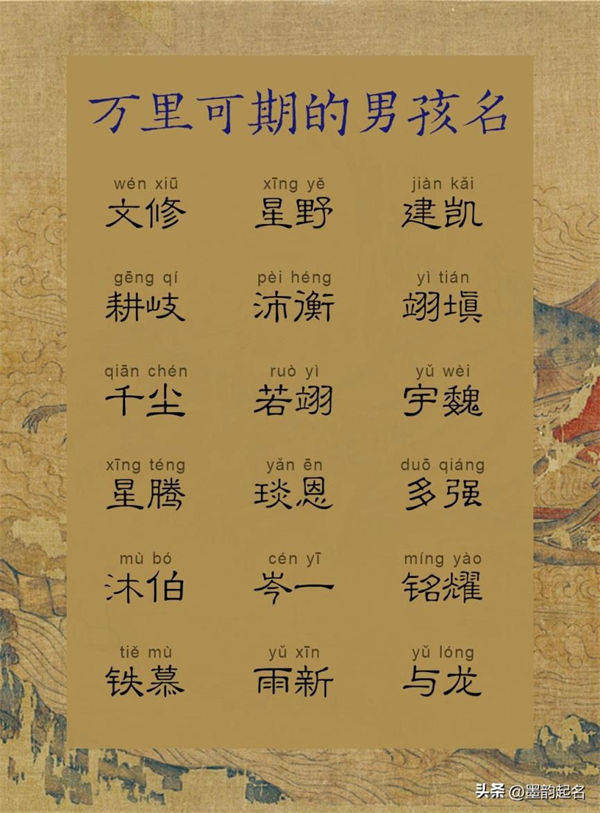 万里可期的男孩名
wén xiū xīng yě jiàn kǎi
文修 星野 建凯
gēng qí pèi héng yì tián
耕岐 沛衡 翊填
qiān chén ruò yì yǔ wèi
千尘 若翊 宇魏
xīng téng yǎn ēn duō qiáng
星腾 琰恩 多强
mù bó cén yī míng yào
沐伯 岑一 铭耀
tiě mù yǔ xīn yǔ lóng
铁慕 雨新 与龙
头条 @墨韵起名